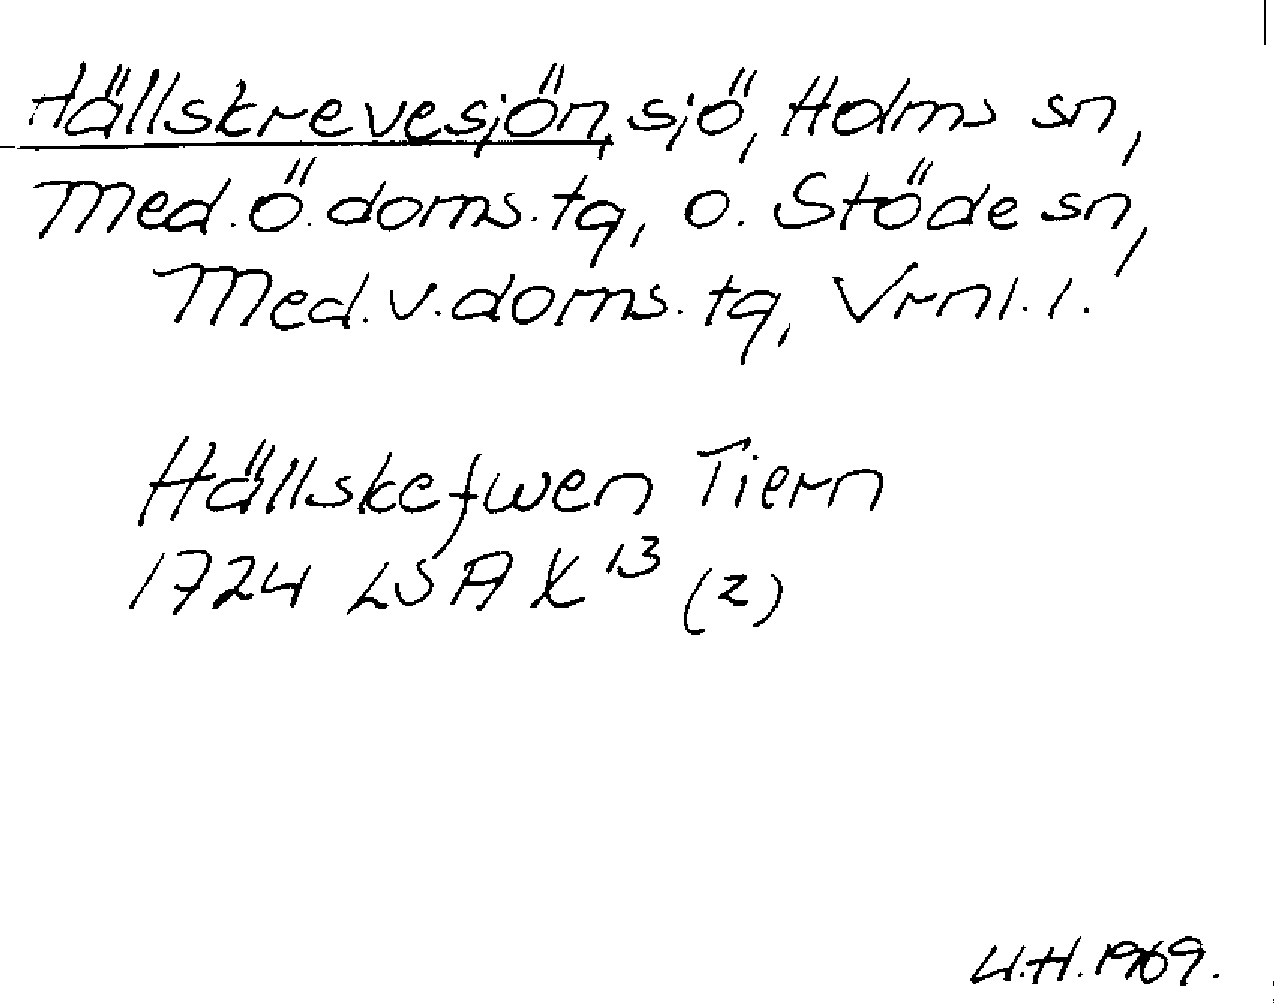 Hällskrevesjön, sjö, Holms sn,
Med. Ö. doms. tg, o. Stöde sn,
Med. v. doms. tg, Vrnl. l.
Hällskefwen Tiern
1724 LSA X¹³ (2)
U.H. 1969.